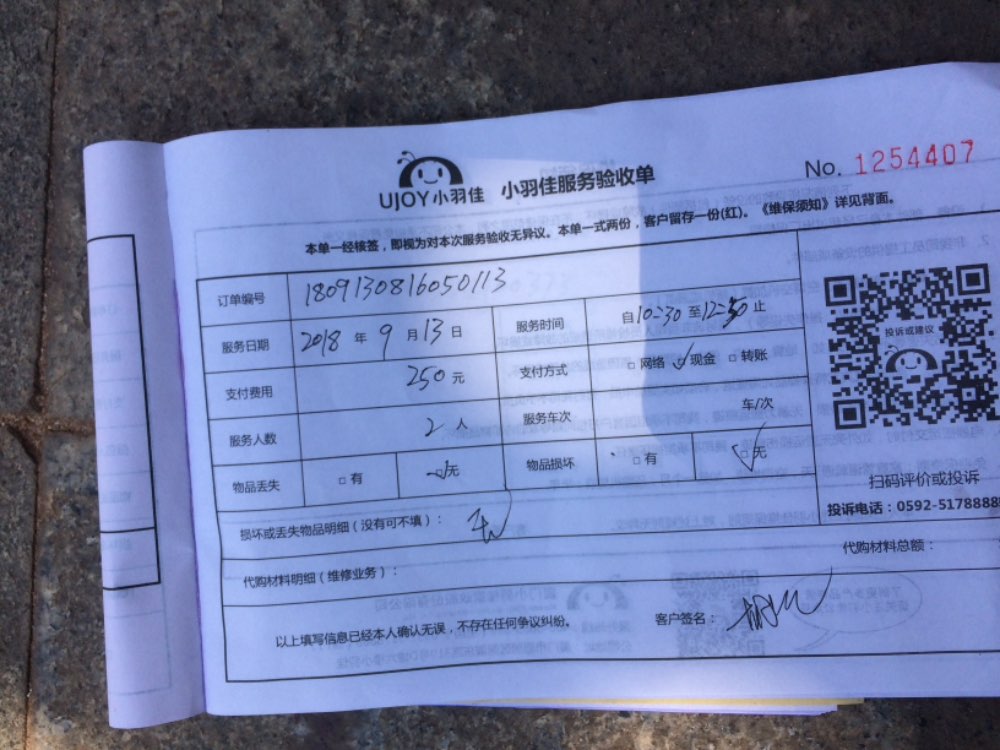 UJOY小羽佳 小羽佳服务验收单 No. 1254407
本单一经核签，即视为对本次服务验收无异议。本单一式两份，客户留存一份(红)。《维保须知》详见背面。
订单编号 1809130816050113
服务日期 2018 年 9 月 13 日 服务时间 自 10:30 至 12:30 止
支付费用 250 元 支付方式 □ 网络 ☑ 现金 □ 转账
服务人数 2 人 服务车次 车/次
物品丢失 □ 有 ☑ 无 物品损坏 □ 有 ☑ 无
投诉或建议
扫码评价或投诉
投诉电话：0592-5178888
损坏或丢失物品明细（没有可不填）： 无
代购材料明细（维修业务）： 代购材料总额：
以上填写信息已经本人确认无误，不存在任何争议纠纷。 客户签名：